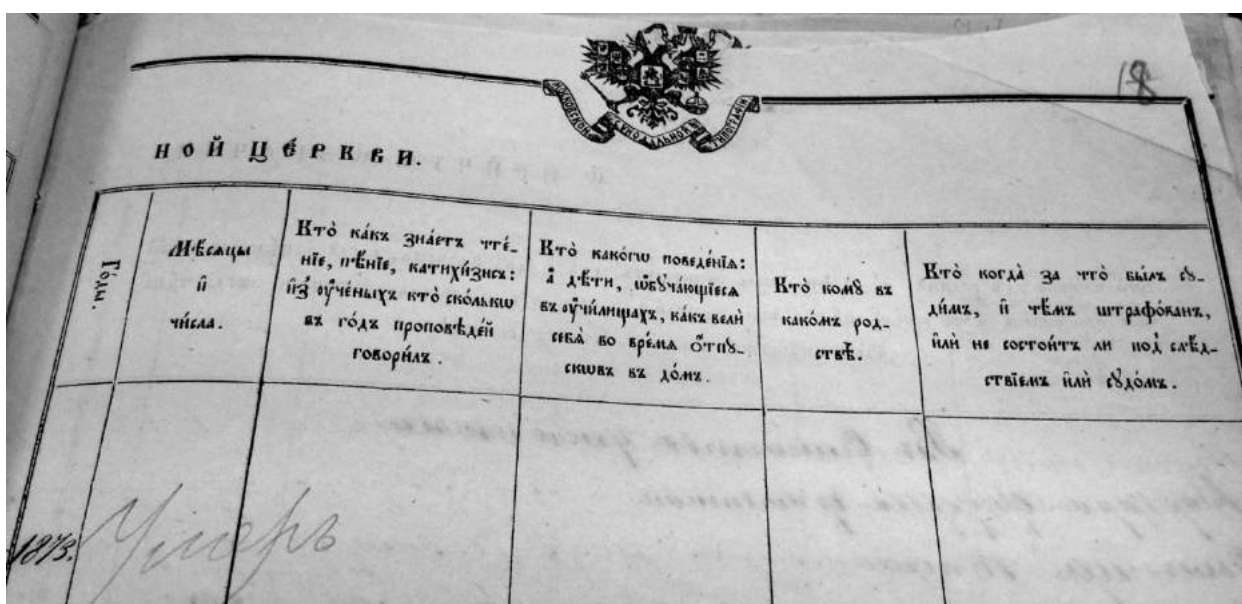 18
МОСКОВСКОЙ СѴНОДАЛЬНОЙ ТИПОГРАФІИ
НОЙ ЦЕ́РКВИ.
Го́ды.
Мѣ́сяцы
и҆
чи́сла.
Кто̀ ка́кѡ зна́етъ чте́-
нїе, пѣ́нїе, катихи́зисъ:
и҆з̾ ᲂу҆че́ныхъ кто̀ ско́лькѡ
въ го́дъ проповѣ́дей
говори́лъ.
Кто̀ како́гѡ поведе́нїѧ:
а҆ дѣ́ти, ѡ҆бꙋча́ющїесѧ
въ ᲂу҆чи́лищахъ, ка́къ велѝ
себѧ̀ во вре́мѧ ѿпꙋ-
сковъ въ до́мъ.
Кто̀ комꙋ̀ въ
како́мъ род-
ствѣ̀.
Кто̀ когда̀ за что̀ бы́лъ сꙋ-
ди́мъ, и҆ чѣ́мъ штрафо́ванъ,
и҆лѝ не состои́тъ ли под̾ слѣ́д-
ствїемъ и҆лѝ сꙋдо́мъ.
1873.
Умеръ